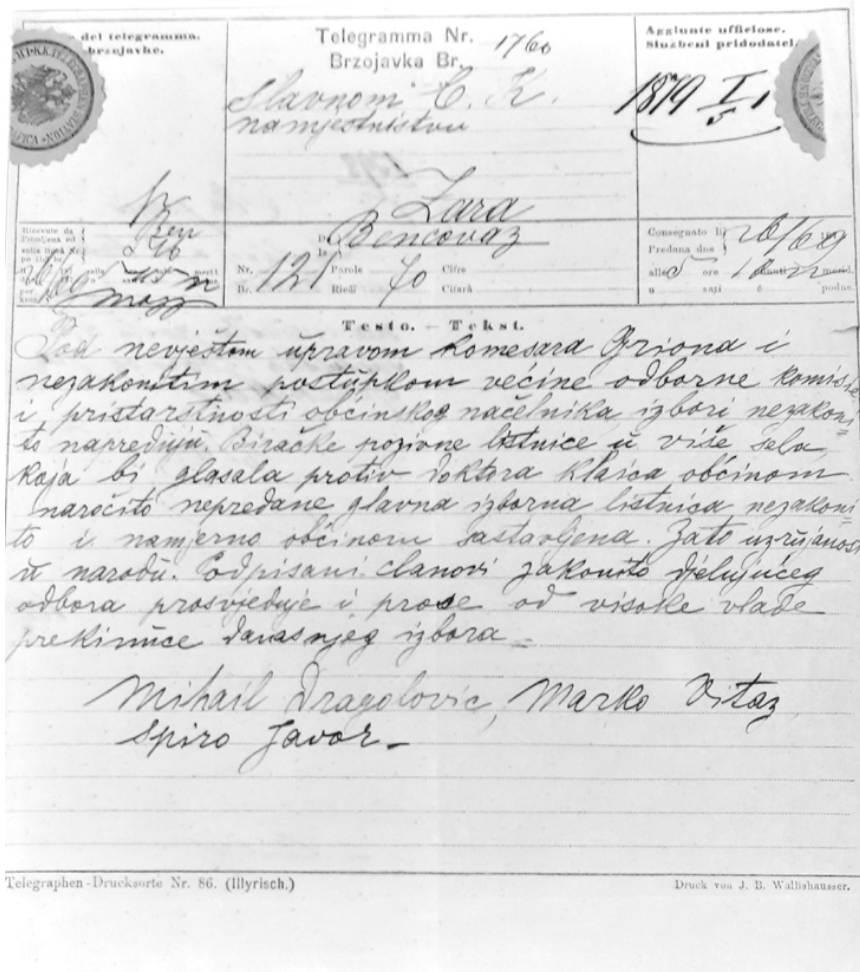 del telegramma.
brzojavke.
Telegramma Nr. 1760
Brzojavka Br.
Aggiunte uffiziose.
Službeni pridodatci.
Slavnom C. K.
namjestništvu
1819 I/5 1
Zara
Bencovaz
Ricevuto da
Consegnato li 26/6 69
Predana dne
Nr. 121 Parole 70 Cifre
Br. Rieči Cifarâ
alle 5 ore merid.
u sati podne.
Testo. — Tekst.
Pod nevještom upravom komesara Griona i
nezakonitim postupkom većine odborne komisije
i pristarstnosti občinskog načelnika izbori nezakoni=
to napreduju. Biračke pozivne listnice u više sela,
koja bi glasala protiv doktora Klaica občinom
naročito nepredane glavna izborna listnica nezakoni=
to i namjerno občinom sastavljena. Zato uzrujanost
u narodu. Podpisani clanovi zakonito djelujućeg
odbora prosvjeduje i prose od visoke vlade
prekinuce danasnjeg izbora =
Mihail Dragolovic, Marko Vitaz,
Spiro Javor —
Telegraphen-Drucksorte Nr. 86. (Illyrisch.)
Druck von J. B. Wallishausser.